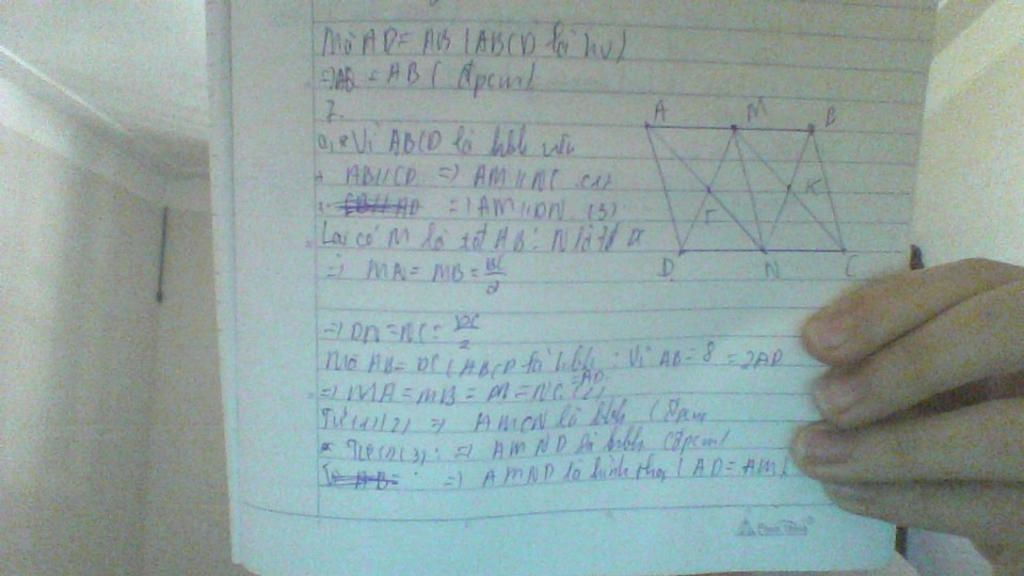 Mà AD = AB (ABCD là hv)
= AB (đpcm)
7.
a, * Vì ABCD là hbh nên
AB//CD => AM//NC (1)
=> AM//DN (3)
Lại có M là tđ AB; N là tđ
=> MA = MB =
=> DN = NC = DC/2
Mà AB = DC (ABCD là hbh; Vì AB = 8 = 2AD
=> MA = MB = = NC (2)
= AD
Từ (1)(2) => AMCN là hbh (đpcm
* Từ (2)(3): => AMND là hbh (đpcm)
=> AMND là hình thoi (AD = AM)
A M B
I K
D N C